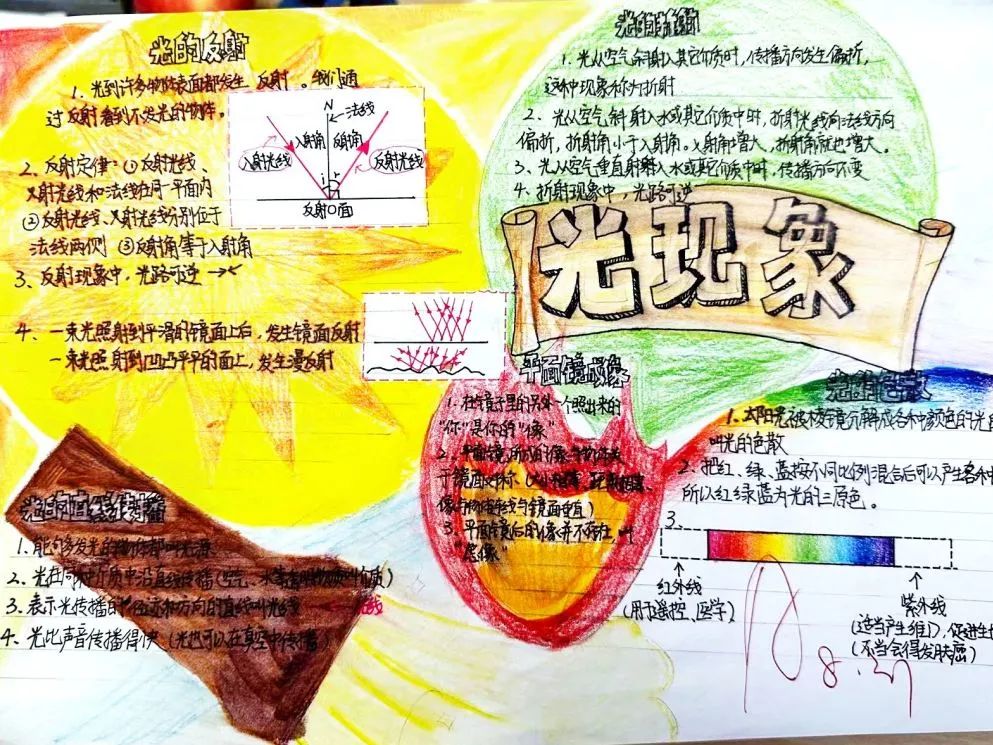 光的反射
1. 光到许多物体表面都发生反射。我们通
过反射看到不发光的物体。
N
法线
入射角
反射角
入射光线
反射光线
i
r
反射O面
2. 反射定律：①反射光线、
入射光线和法线在同一平面内
②反射光线、入射光线分别位于
法线两侧 ③反射角等于入射角
3. 反射现象中，光路可逆
4. 一束光照射到平滑的镜面上后，发生镜面反射
一束光照射到凹凸不平的面上，发生漫反射
光的折射
1. 光从空气斜射入其它介质时，传播方向发生偏折，
这种现象称为折射
2. 光从空气斜射入水或其它介质中时，折射光线向法线方向
偏折，折射角小于入射角。入射角增大，折射角就也增大。
3. 光从空气垂直射入水或其它介质中时，传播方向不变
4. 折射现象中，光路可逆
光现象
平面镜成像
1. 在镜子里的另外一个照出来的
"你"是你的"像"
2. 平面镜所成的像与物体关
于镜面对称、
像与物连线与镜面垂直）
3. 平面镜后的像并不存在，叫
"虚像"
光的色散
1. 太阳光被棱镜分解成各种颜色的光
叫光的色散
2. 把红、绿、蓝按不同比例混合后可以产生各种
所以红绿蓝为光的三原色。
3.
红外线
（用于遥控、医学）
紫外线
（适当产生维D，促进生
（不当会得皮肤癌）
8.31
光的直线传播
1. 能够发光的物体都叫光源
2. 光在同种介质中沿直线传播（空气、水等
3. 表示光传播的径迹和方向的直线叫光线
4. 光比声音传播得快（光也可以在真空中传播）